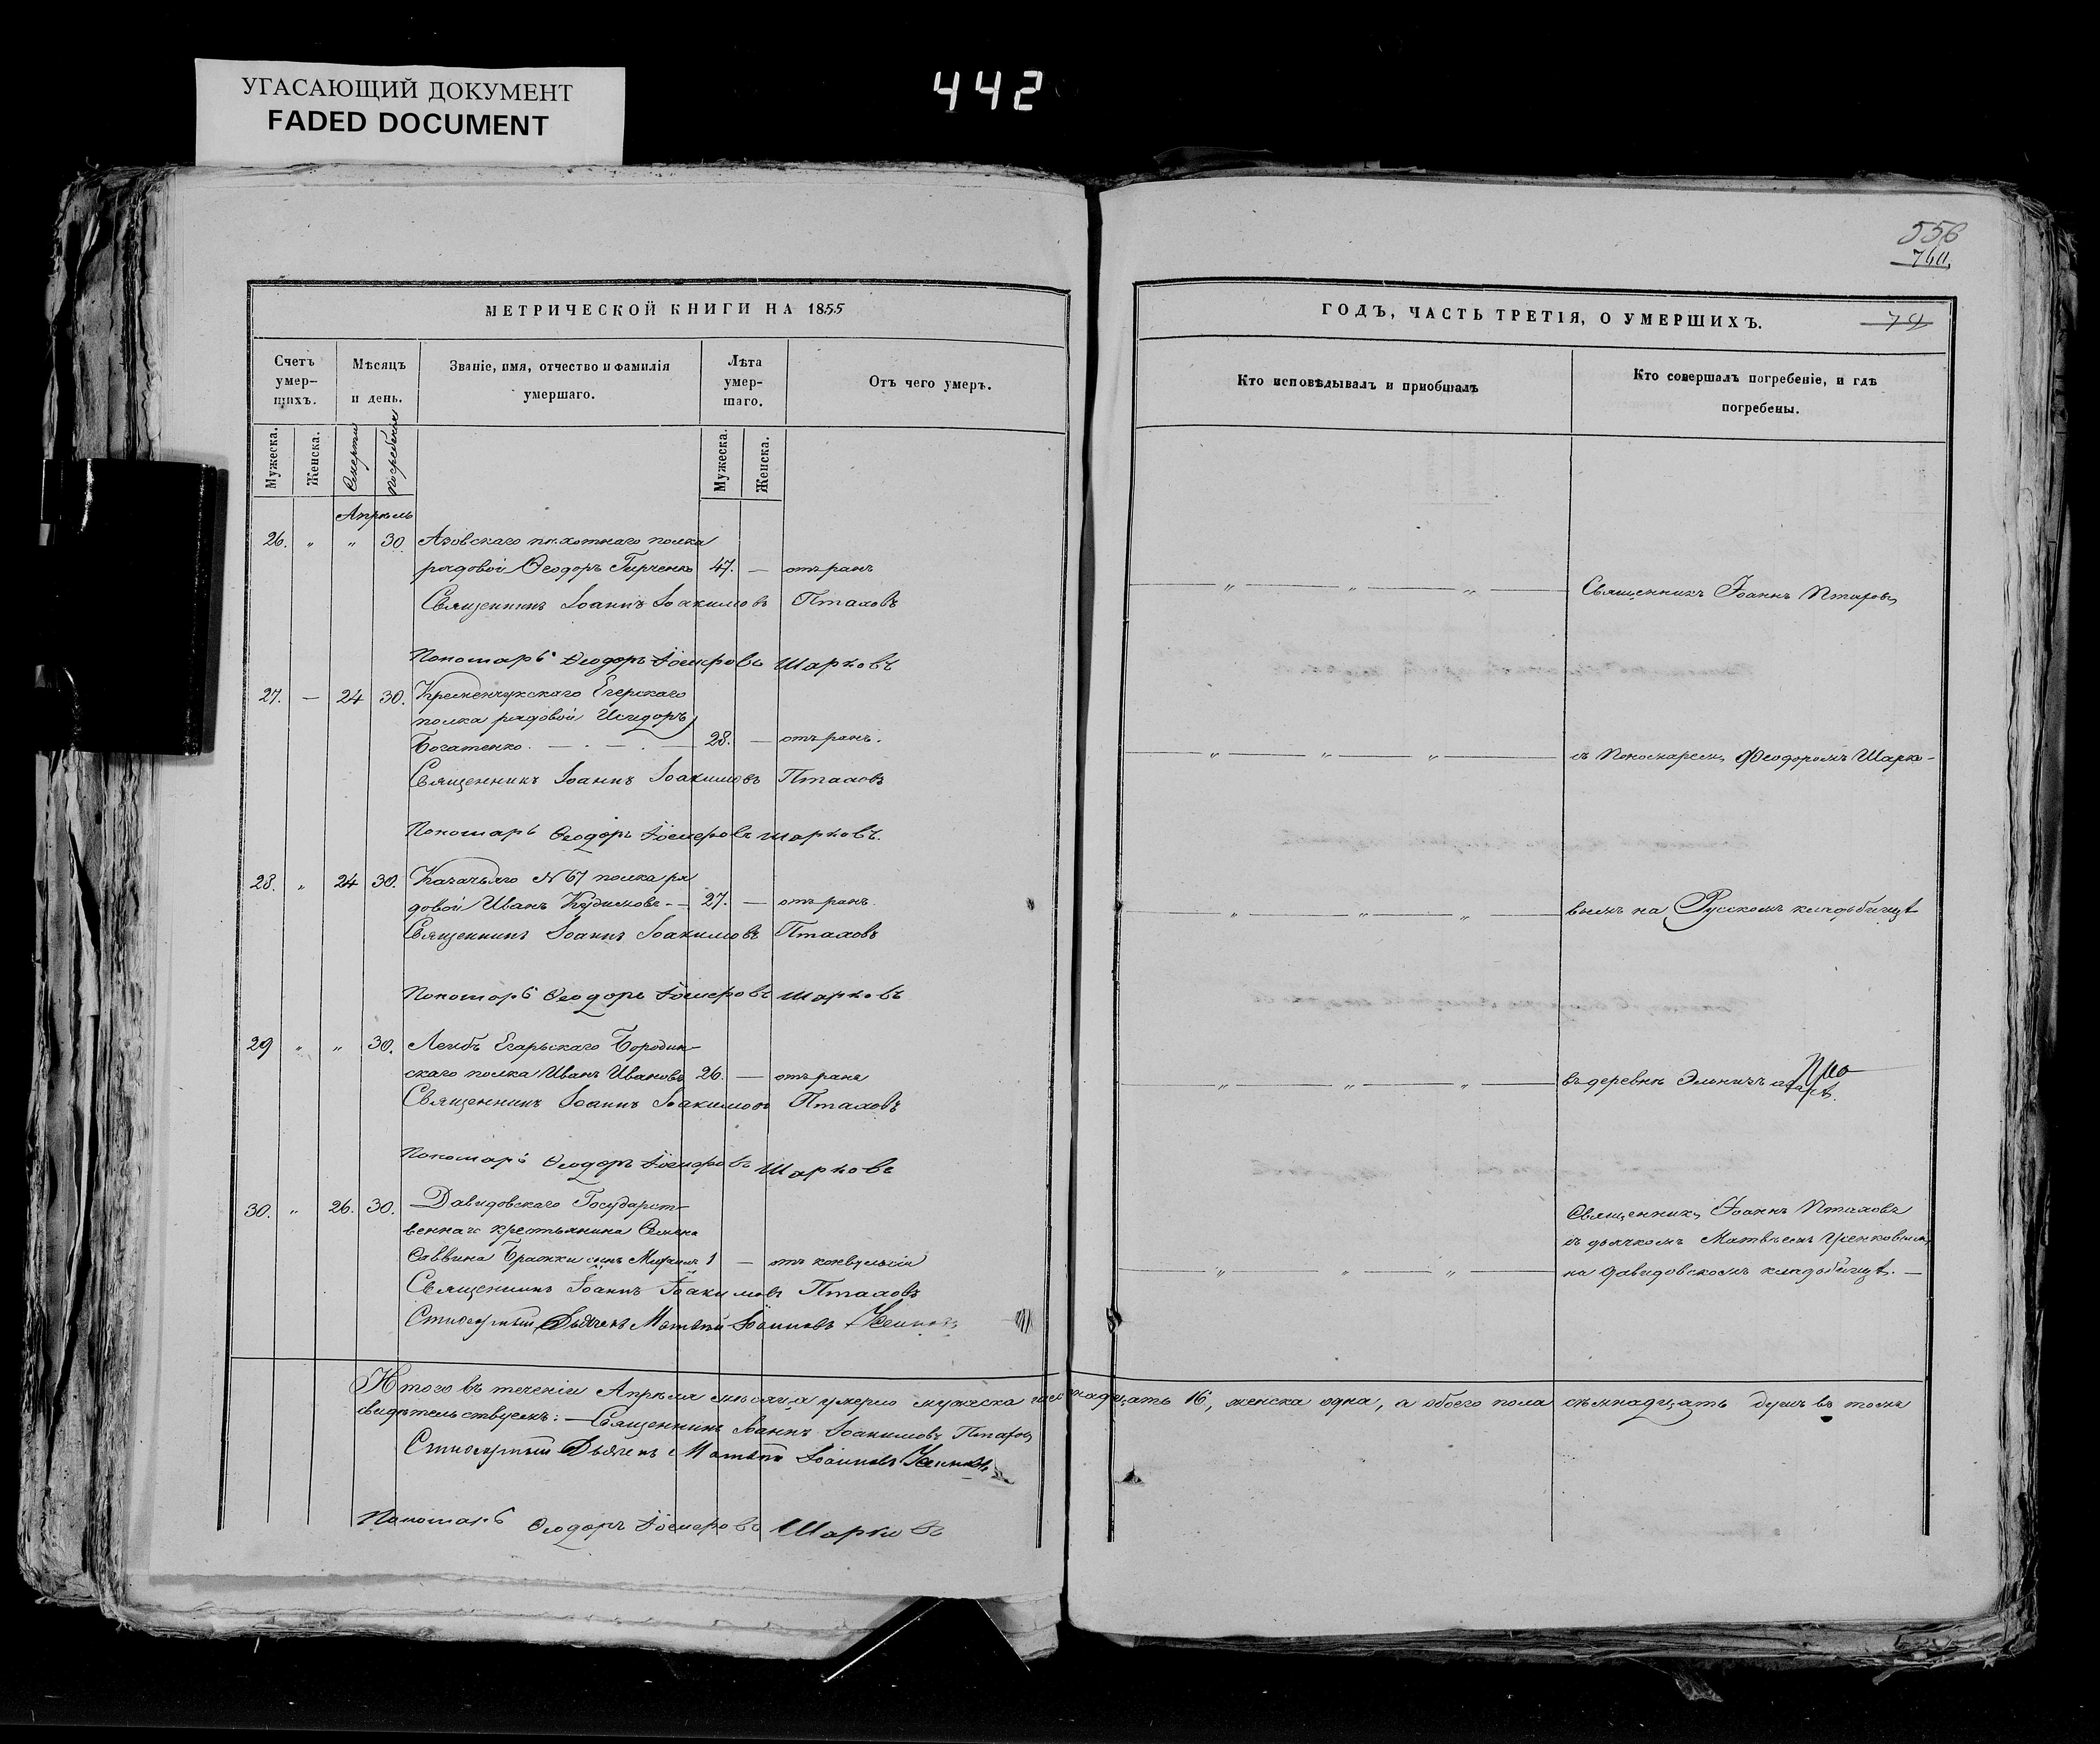 УГАСАЮЩИЙ ДОКУМЕНТ
FADED DOCUMENT
442
МЕТРИЧЕСКОЙ КНИГИ НА 1855
Счетъ умер-шихъ.
Мѣсяцъ и день.
Званіе, имя, отчество и фамилія умершаго.
Лѣта умер-шаго.
Отъ чего умеръ.
Мужеска.
Женска.
Смерти
Погребенія
Мужеска.
Женска.
Апрѣль
26. " " 30. Азовскаго пѣхотнаго полка
рядовой Ѳеодоръ Гирченко 47. — отъ ранъ
Священникъ Іоаннъ Іоакимовъ Птаховъ
Пономарь Ѳеодоръ Шарковъ
27. — 24 30. Кременчукскаго Егерскаго
полка рядовой Исидоръ
Богатенко. — . — . — 28. — отъ ранъ.
Священникъ Іоаннъ Іоакимовъ Птаховъ
Пономарь Ѳеодоръ Шарковъ.
28. " 24 30. Казачьяго N 67 полка ря
довой Иванъ Кудимовъ - — 27. — отъ ранъ.
Священникъ Іоаннъ Іоакимовъ Птаховъ
Пономарь Ѳеодоръ Шарковъ
29 " " 30. Лейбъ Егарьскаго Бородин-
скаго полка Иванъ Ивановъ 26. — отъ ранъ
Священникъ Іоаннъ Іоакимовъ Птаховъ
Пономарь Ѳеодоръ Шарковъ
30. " 26. 30. Давидовскаго Государст-
веннаго крестьянина Семена
Саввина Бражки сынъ Михаилъ 1 — отъ конвульсіи
Священникъ Іоаннъ Іоакимовъ Птаховъ
Дьячекъ Матѳей Іоанновъ
Итого въ теченіи Апрѣля мѣсяца умерло мужеска шестнадцать 16, женска одна, а обоего пола сѣмнадцать душъ въ томъ
свидѣтельствуемъ: — Священникъ Іоаннъ Іоакимовъ Птаховъ
Дьячекъ Матѳей Іоанновъ
Пономарь Ѳеодоръ Шарковъ
556
740.
79
ГОДЪ, ЧАСТЬ ТРЕТІЯ, О УМЕРШИХЪ.
Кто исповѣдывалъ и приобщалъ
Кто совершалъ погребеніе, и гдѣ погребены.
— " — " — " — Священникъ Іоаннъ Птаховъ
— " — " — " — съ Пономаремъ Ѳеодоромъ Шарко-
— " — " — " — вымъ на Русскомъ кладбищѣ
— " — " — " — въ деревнѣ
Священникъ Іоаннъ Птаховъ
съ дьячкомъ Матвѣемъ
— " — " — " — на Давидовскомъ кладбищѣ. —